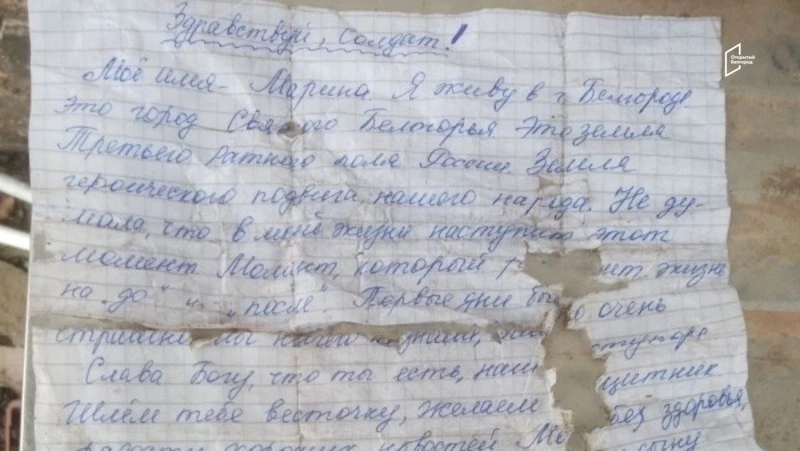 Здравствуй, солдат!
Открытый
Белгород
Моё имя - Марина. Я живу в г. Белгороде
это город Святого Белогорья. Это земля
Третьего ратного поля России. Земля
героического подвига, нашого народа. Не ду-
мала, что в моей жизни наступит этот
момент. Момент, который ит жизнь
на "до" и "после". Первые дни было очень
мы ничего
Слава Богу, что ты есть, наш щитник
Шлём тебе весточку, желаем здоровья,
хороших новостей. сыну